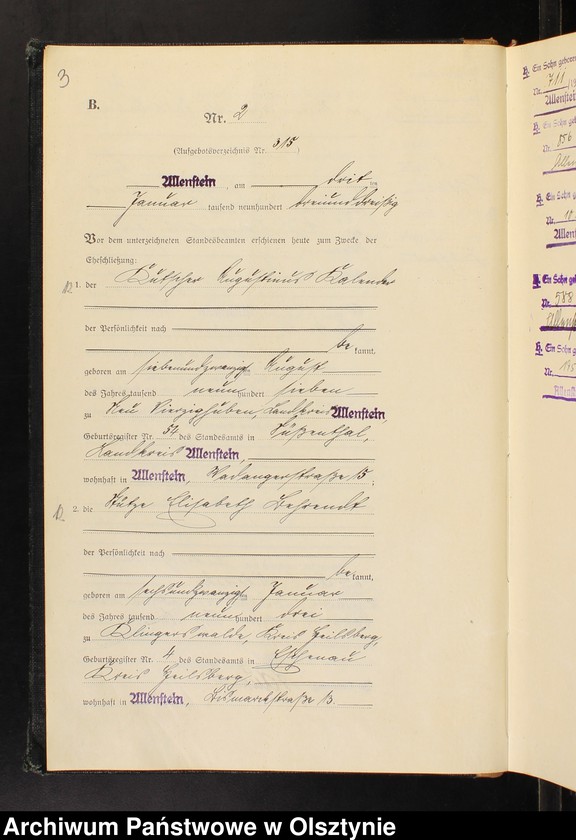 3
B.
Nr. 2
(Aufgebotsverzeichnis Nr. 315)
Allenstein, am dritten
Januar tausend neunhundert dreiunddreißig
Vor dem unterzeichneten Standesbeamten erschienen heute zum Zwecke der
Eheschließung:
1. der Kutscher Augustinus Kalender
der Persönlichkeit nach
bekannt,
geboren am siebenundzwanzigsten August
des Jahres tausend neunhundert sieben
zu Neu Vierzighuben, Landkreis Allenstein,
Geburtsregister Nr. 52 des Standesamts in Süßenthal,
Landkreis Allenstein,
wohnhaft in Allenstein, Wadangerstraße 15;
2. die Stütze Elisabeth Behrendt
der Persönlichkeit nach
bekannt,
geboren am sechsundzwanzigsten Januar
des Jahres tausend neunhundert drei
zu Klingerswalde, Kreis Heilsberg,
Geburtsregister Nr. 4 des Standesamts in Eschenau
Kreis Heilsberg,
wohnhaft in Allenstein, Bismarckstraße
Ein Sohn geboren
Nr. 711
Allenstei
Nr. 856
Ein Sohn ge
Nr.
Allen
Ein Sohn ge
Nr. 588
Ein Sohn g
Nr.
Archiwum Państwowe w Olsztynie